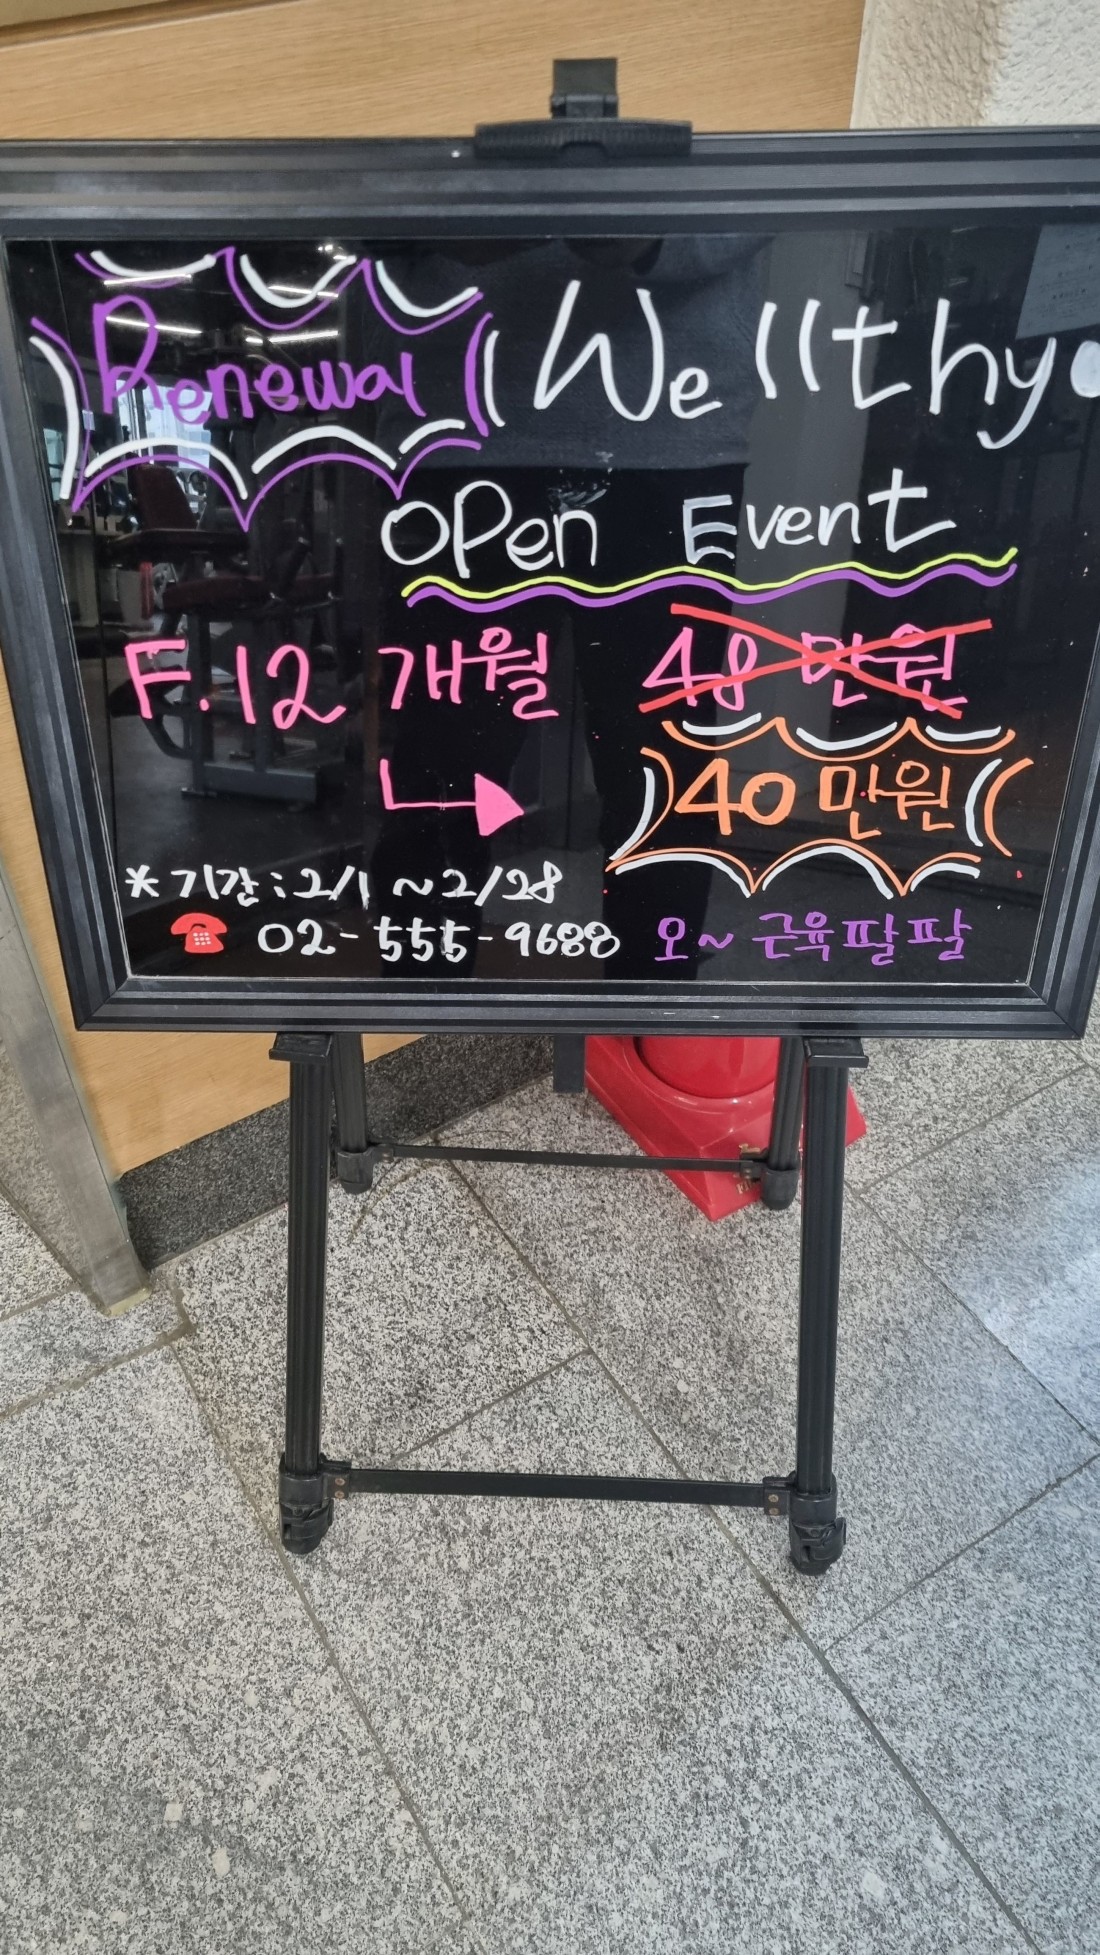 Renewal Wellthy
OPen Event
F.12 개월 48만원
40만원
* 기간 : 2/1 ~ 2/28
☎ 02-555-9688 오~ 근육팔팔